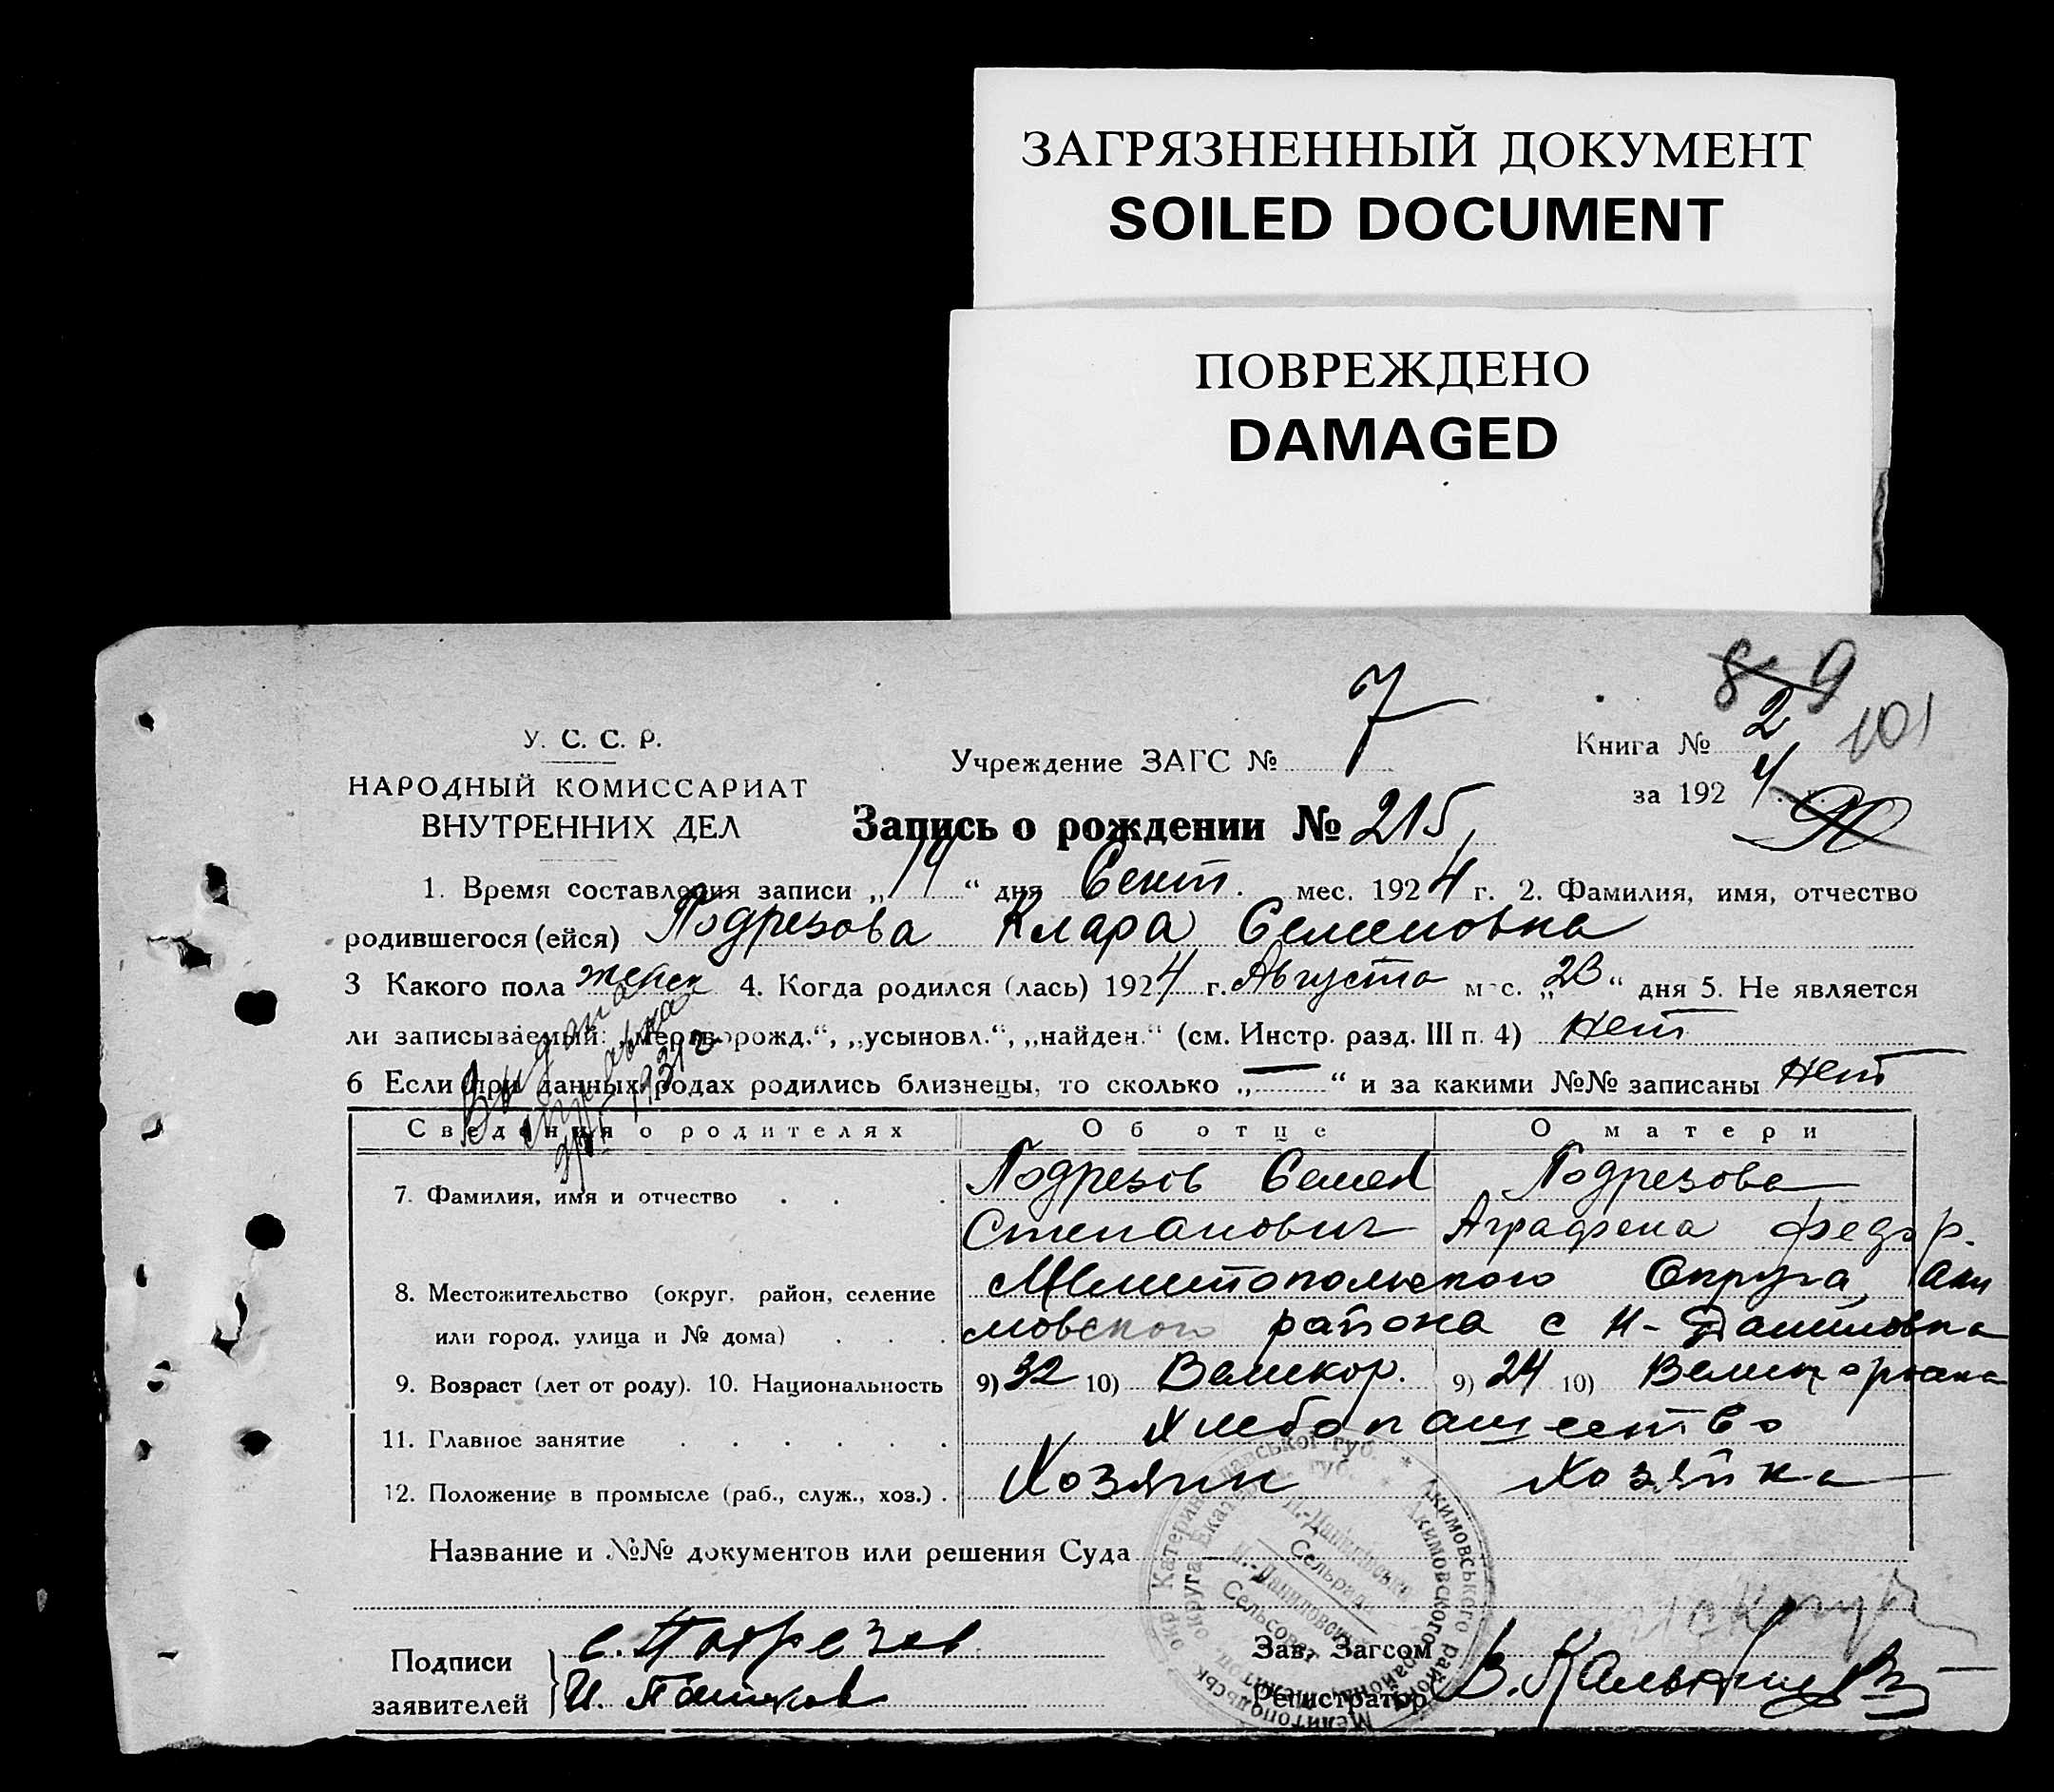 ЗАГРЯЗНЕННЫЙ ДОКУМЕНТ
SOILED DOCUMENT
ПОВРЕЖДЕНО
DAMAGED
8 9
101
У. С. С. Р.
НАРОДНЫЙ КОМИССАРИАТ
ВНУТРЕННИХ ДЕЛ
Учреждение ЗАГС № 7
Книга № 2
за 192 4 г.
90
Запись о рождении № 215
1. Время составления записи „14“ дня Сент. мес. 1924 г. 2. Фамилия, имя, отчество
родившегося (ейся) Подрезова Клара Семеновна
3 Какого пола женск 4. Когда родился (лась) 1924 г. Августа мес. „23“ дня 5. Не является
ли записываемый: „мертворожд.“, „усыновл.“, „найден.“ (см. Инстр. разд. III п. 4) нет
6 Если при данных родах родились близнецы, то сколько „—“ и за какими №№ записаны нет
Выдана
справка
1931 г
Сведения о родителях Об отце О матери
7. Фамилия, имя и отчество . . . Подрезов Семен Подрезова
Степанович Аграфена Федор.
8. Местожительство (округ, район, селение Мелитопольского Округа, Аки
или город, улица и № дома) . . . мовского района с Н-Даниловка
9. Возраст (лет от роду). 10. Национальность 9) 32 10) Великор. 9) 24 10) Великороска
11. Главное занятие . . . . . . Хлебопашество
12. Положение в промысле (раб., служ., хоз.) . Хозяин Хозяйка
Название и №№ документов или решения Суда
Подписи с. Подрезов Зав. Загсом
заявителей И. Пашков Регистратор В.
Акимовського району
Акимовского района
Н.-Данилівська
Сельрада
Н.-Даниловский
Сельсовет